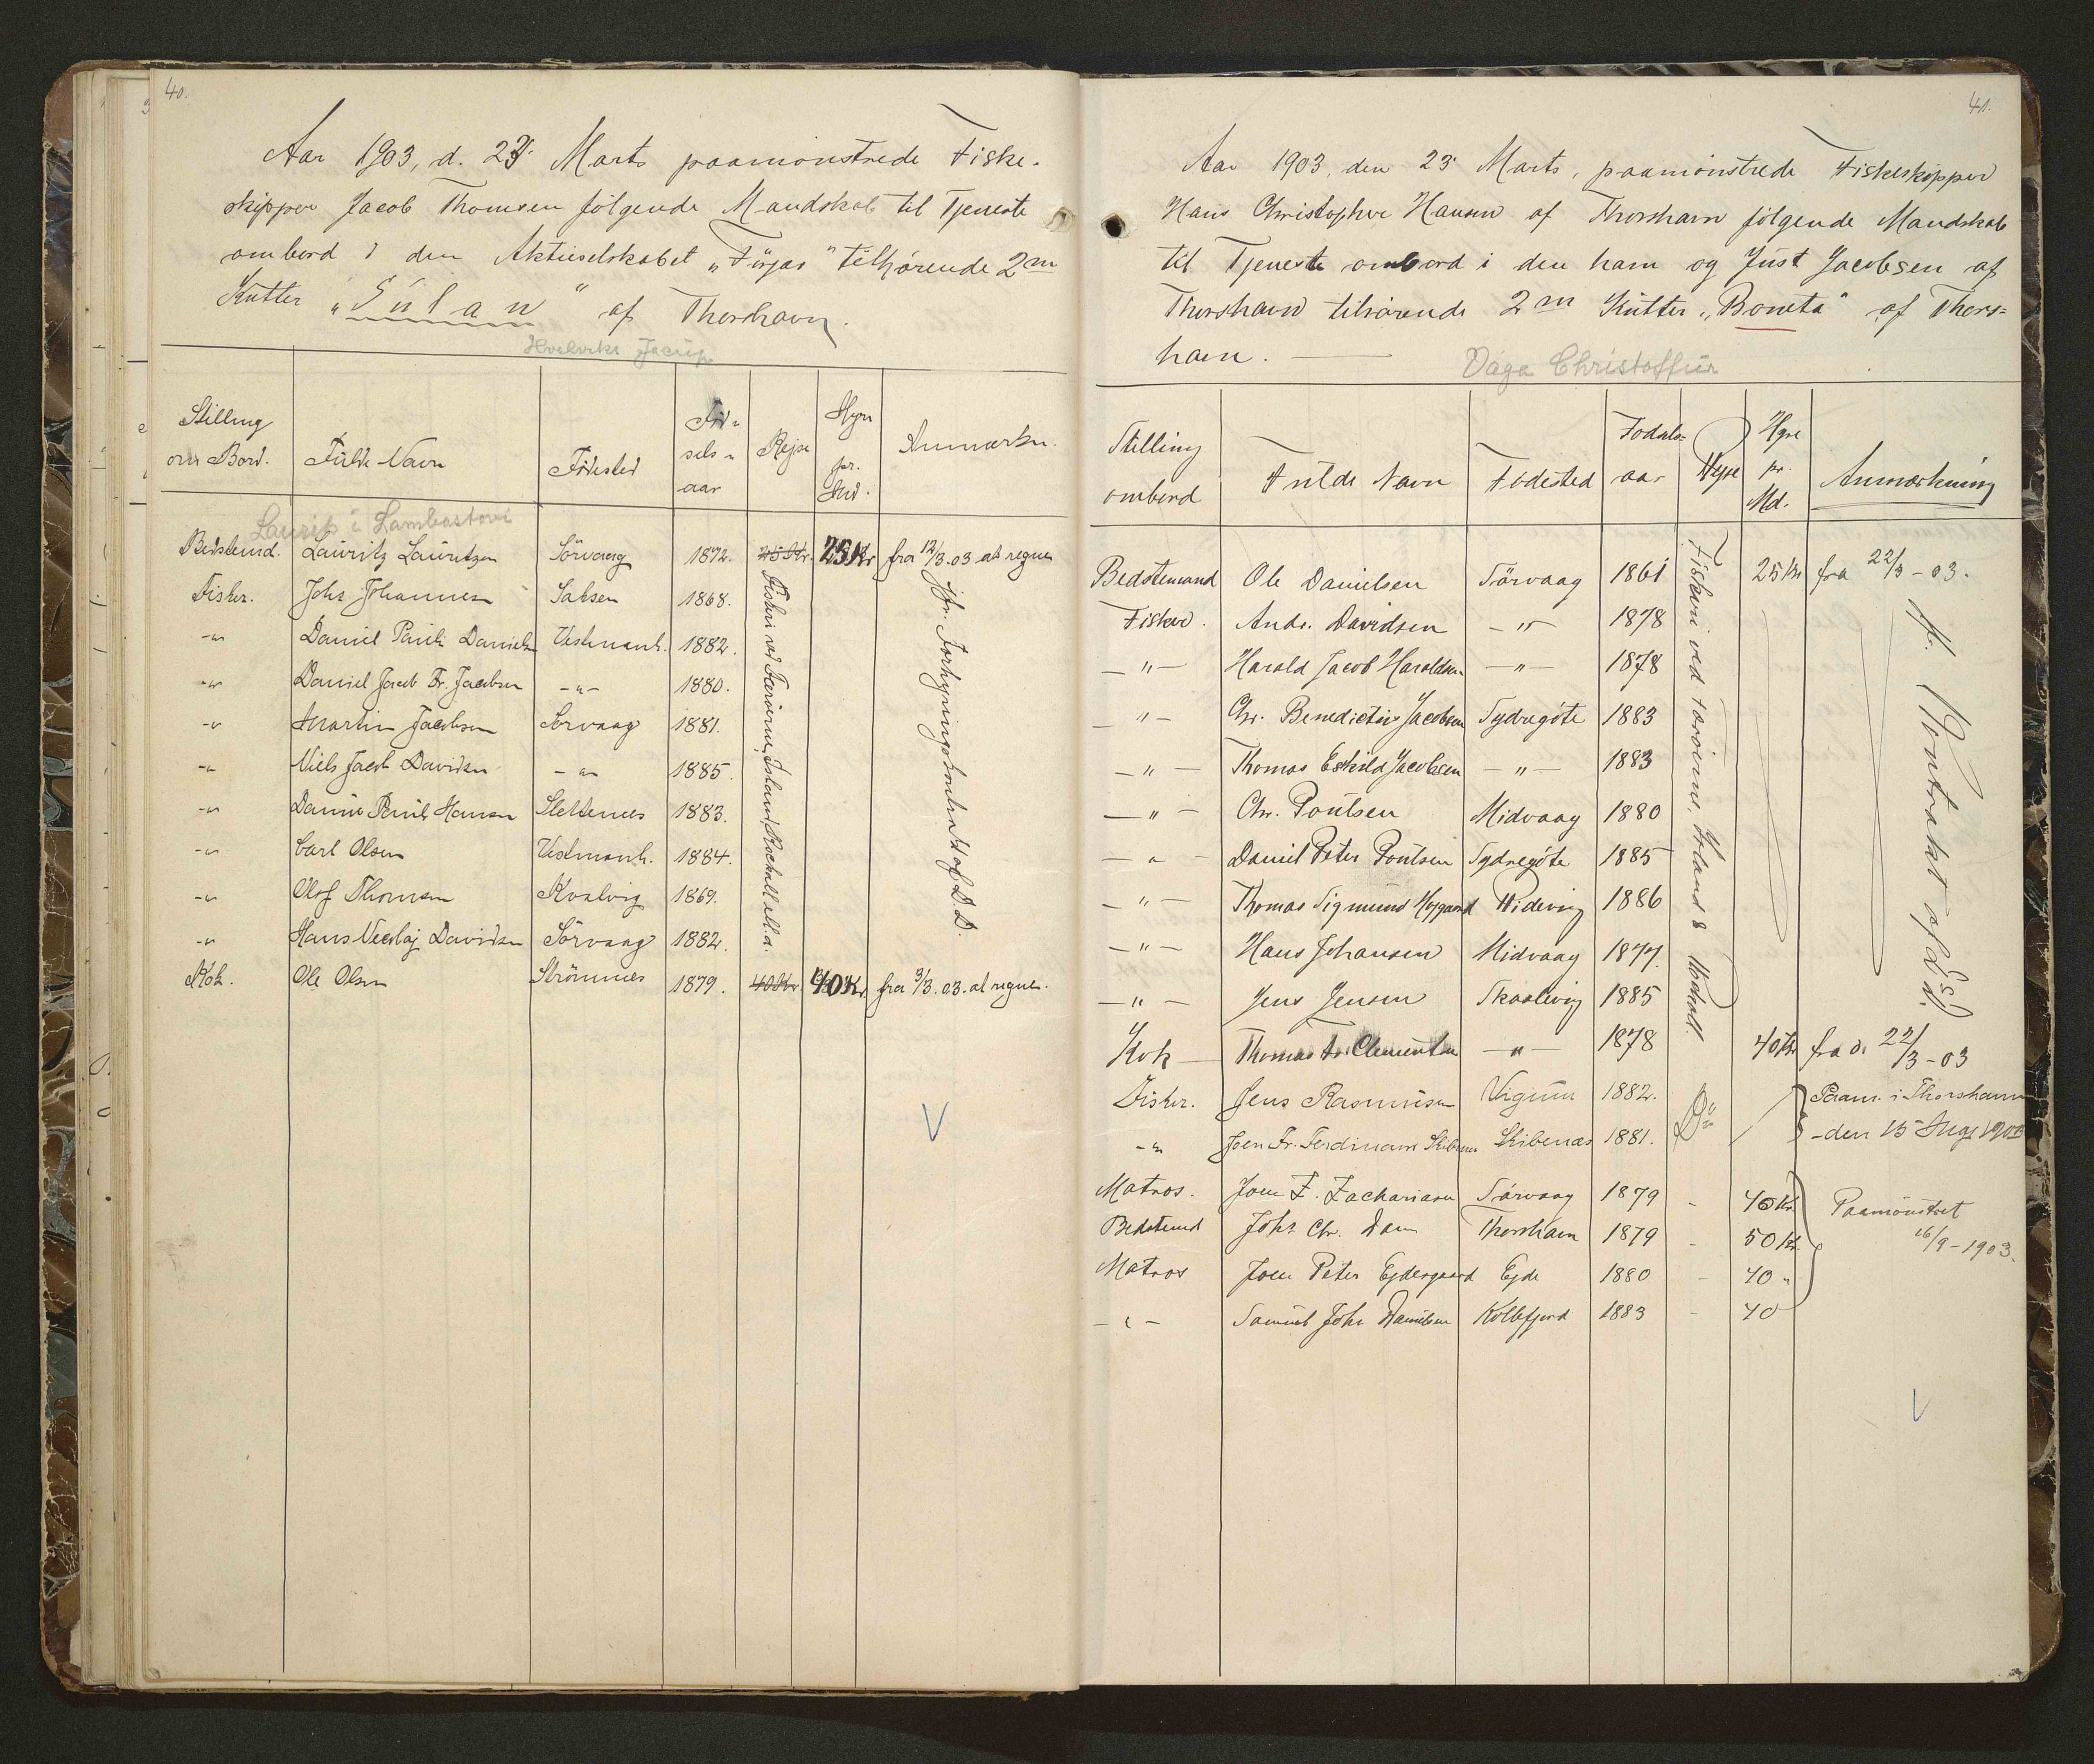 40.
Aar 1903, d. 23' Marts paamønstrede Fiske-
skipper Jacob Thomsen følgende Mandskab til Tjeneste
ombord i den Aktieselskabet "Føyas" tilhørende 2m
Kutter "Súlan" af Thorshavn.
Hvalviks Jacup
Stilling om Bord. Fulde Navn Fødested Fødselsaar Rejse Hyre pr. Md. Anmærkn.
Laurits í Lambastovu
Bedstemd. Lauritz Lauritzen Sörvaag 1872. 25 Kr. 25 Kr fra 12/3.03 at regne
Fisker. Johs Johannesen Saksen 1868.
-"- Daniel Pauli Danielsen Vestmanh. 1882.
-"- Daniel Jacob Fr. Jacobsen -"- 1880.
-"- Martin Jacobsen Sørvaag 1881.
-"- Niels Jacob Davidsen -"- 1885.
-"- Daniel Pauli Hansen Slettenes 1883.
-"- Carl Olsen Vestmanh. 1884.
-"- Olof Thomsen Kvalvig 1869.
-"- Hans Nicolaj Davidsen Sörvaag 1882.
Kok. Ole Olsen Strömnes 1879. 40 Kr. 40 Kr. fra 3/3.03. at regne.
Fiskeri ved Færøerne, Island, Rockall ell. a.
jfr. Forhyringskontrakt af D.D.
V
41.
Aar 1903, den 23' Marts, paamønstrede Fiskeskipper
Hans Christopher Hansen af Thorshavn følgende Mandskab
til Tjeneste ombord i den ham og Just Jacobsen af
Thorshavn tilhørende 2m Kutter "Boneta" af Thors=
havn.
Vága Christoffur
Stilling ombord Fulde Navn Fødested Fødselsaar Rejse Hyre pr. Md. Anmærkning
Bedstemand Ole Danielsen Sörvaag 1861 25 Kr fra 22/3-03.
Fisker. Andr. Davidsen -"- 1878
-"- Harald Jacob Haraldsen -"- 1878
-"- Chr. Benedictus Jacobsen Sydregöte 1883
-"- Thomas Eskild Jacobsen -"- 1883
-"- Chr. Poulsen Midvaag 1880
-"- Daniel Peter Poulsen Sydregöte 1885
-"- Thomas Sigmund Højgaard Videvig 1886
-"- Hans Johansen Midvaag 1877.
-"- Jens Jensen Skaalevig 1885
Kok Thomas Fr. Clementsen -"- 1878 40 Kr fra d. 22/3-03
Fisker. Jens Rasmussen 1882. Paam. i Thorshavn
-"- Joen Fr. Ferdinand Skibenes Skibenæs 1881. den 15 Aug. 1903
Matros. Joen Z. Zachariasen Sörvaag 1879 - 40 Kr. Paamönstret
Bedstemd Johs Chr. Dam Thorshavn 1879 - 50 Kr. 16/9-1903.
Matros Joen Peter Ejdesgaard Ejde 1880 - 40 "
-"- Samuel Johs Danielsen Kollefjord 1883 - 40
Fiskeri ved Færöerne, Island & Rockall.
Do
jf. Kontrakt af D.D.
V